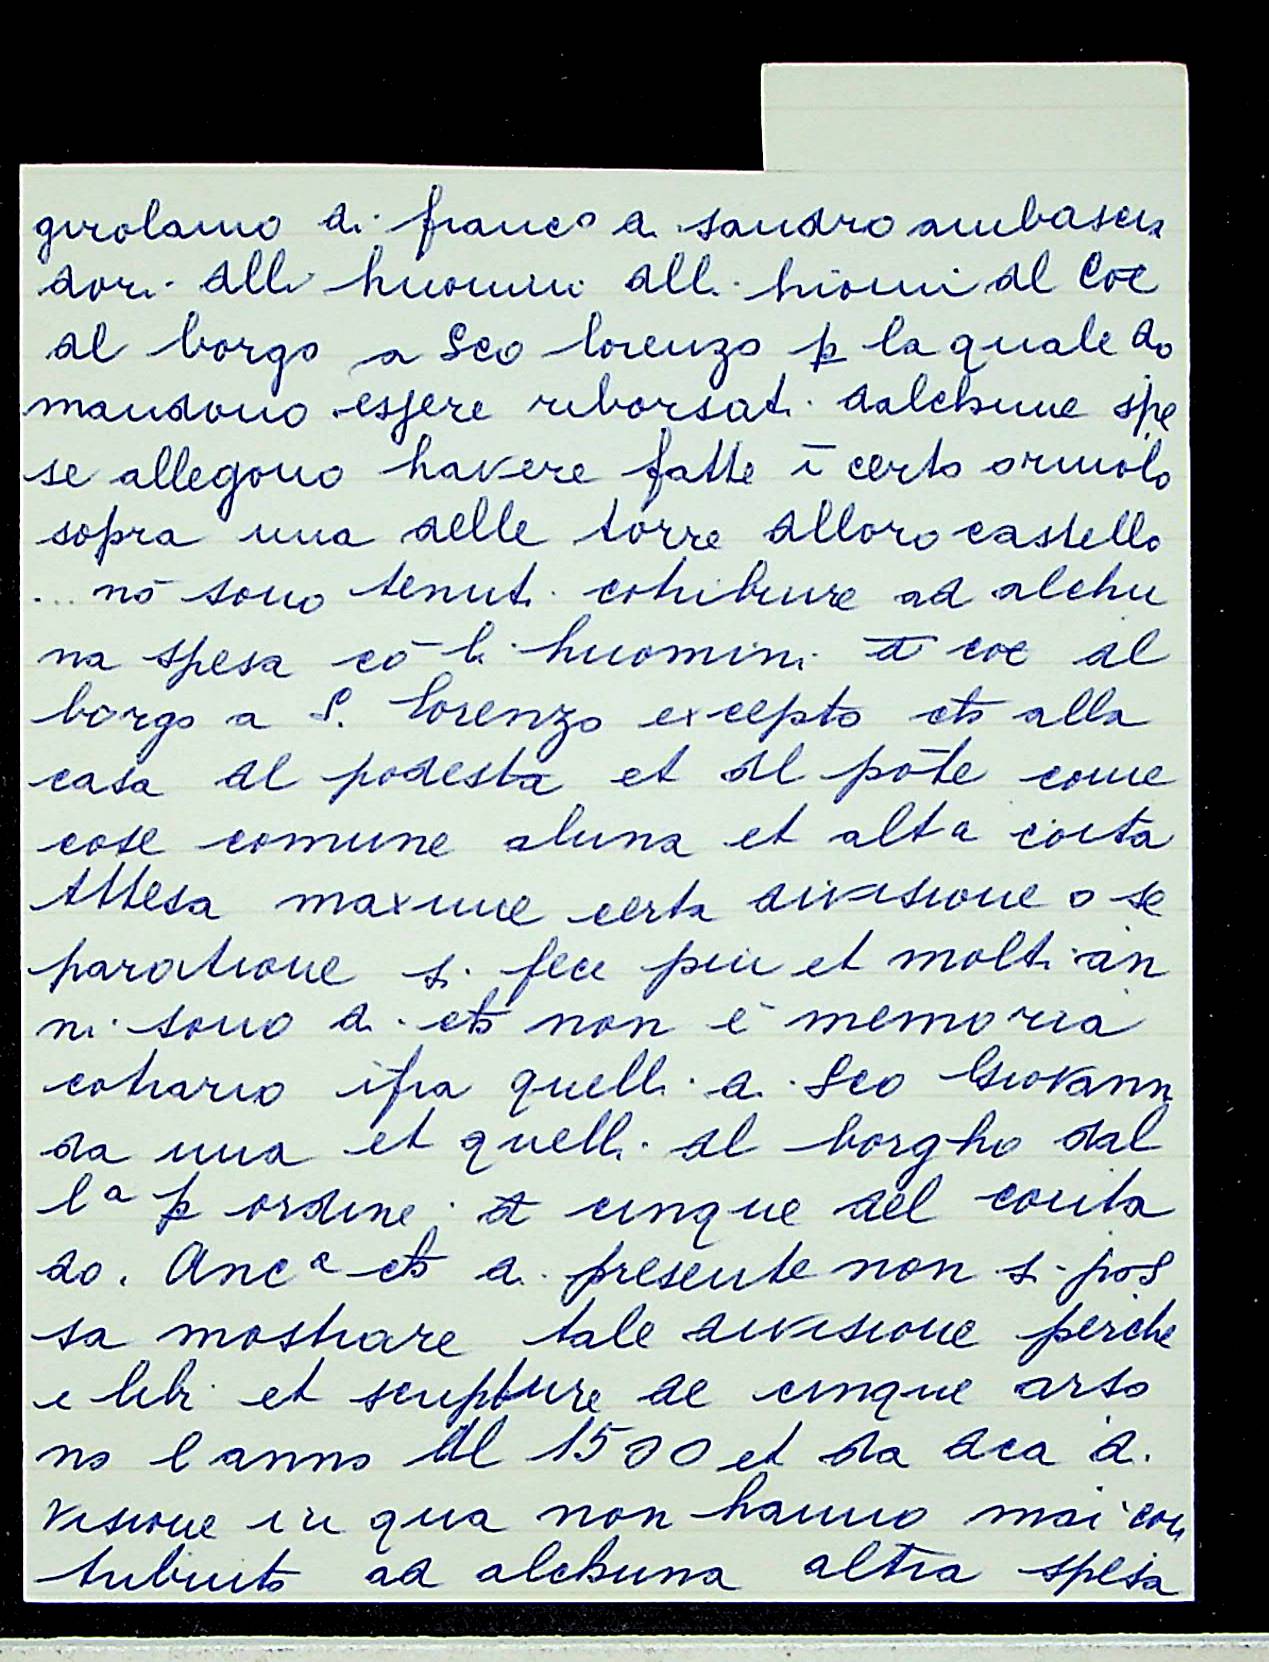 girolamo di franc° di sandro ambascia
dori dlli huomini dlli hiomi dl Coē
dl borgo a Sco lorenzo p la quale do
mandono essere riborsati dalchune spe
se allegono havere fatte ī certo oriuolo
sopra una delle torre dlloro castello
... nō sono tenuti cotribuire ad alchu
na spesa cō li huomini coē dl
borgo a S. lorenzo excepto cħ alla
casa dl podesta et dl pōte come
cose comune aluna et altª
Attesa maxime certa divisione o se
paratione si fece piu et molti an
ni sono di cħ non e memoria
cotrario ifra quelli di Sco Giovanni
da una et quelli dl borgho dal
lª p ordine cinque del conta
do. Ancª cħ di presente non si pos
sa mostrare tale divisione perche
e libri et scripture de cinque arso
no l anno dl 1500 et da dca di
visione in qua non hanno mai con
tribuito ad alchuna altra spesa